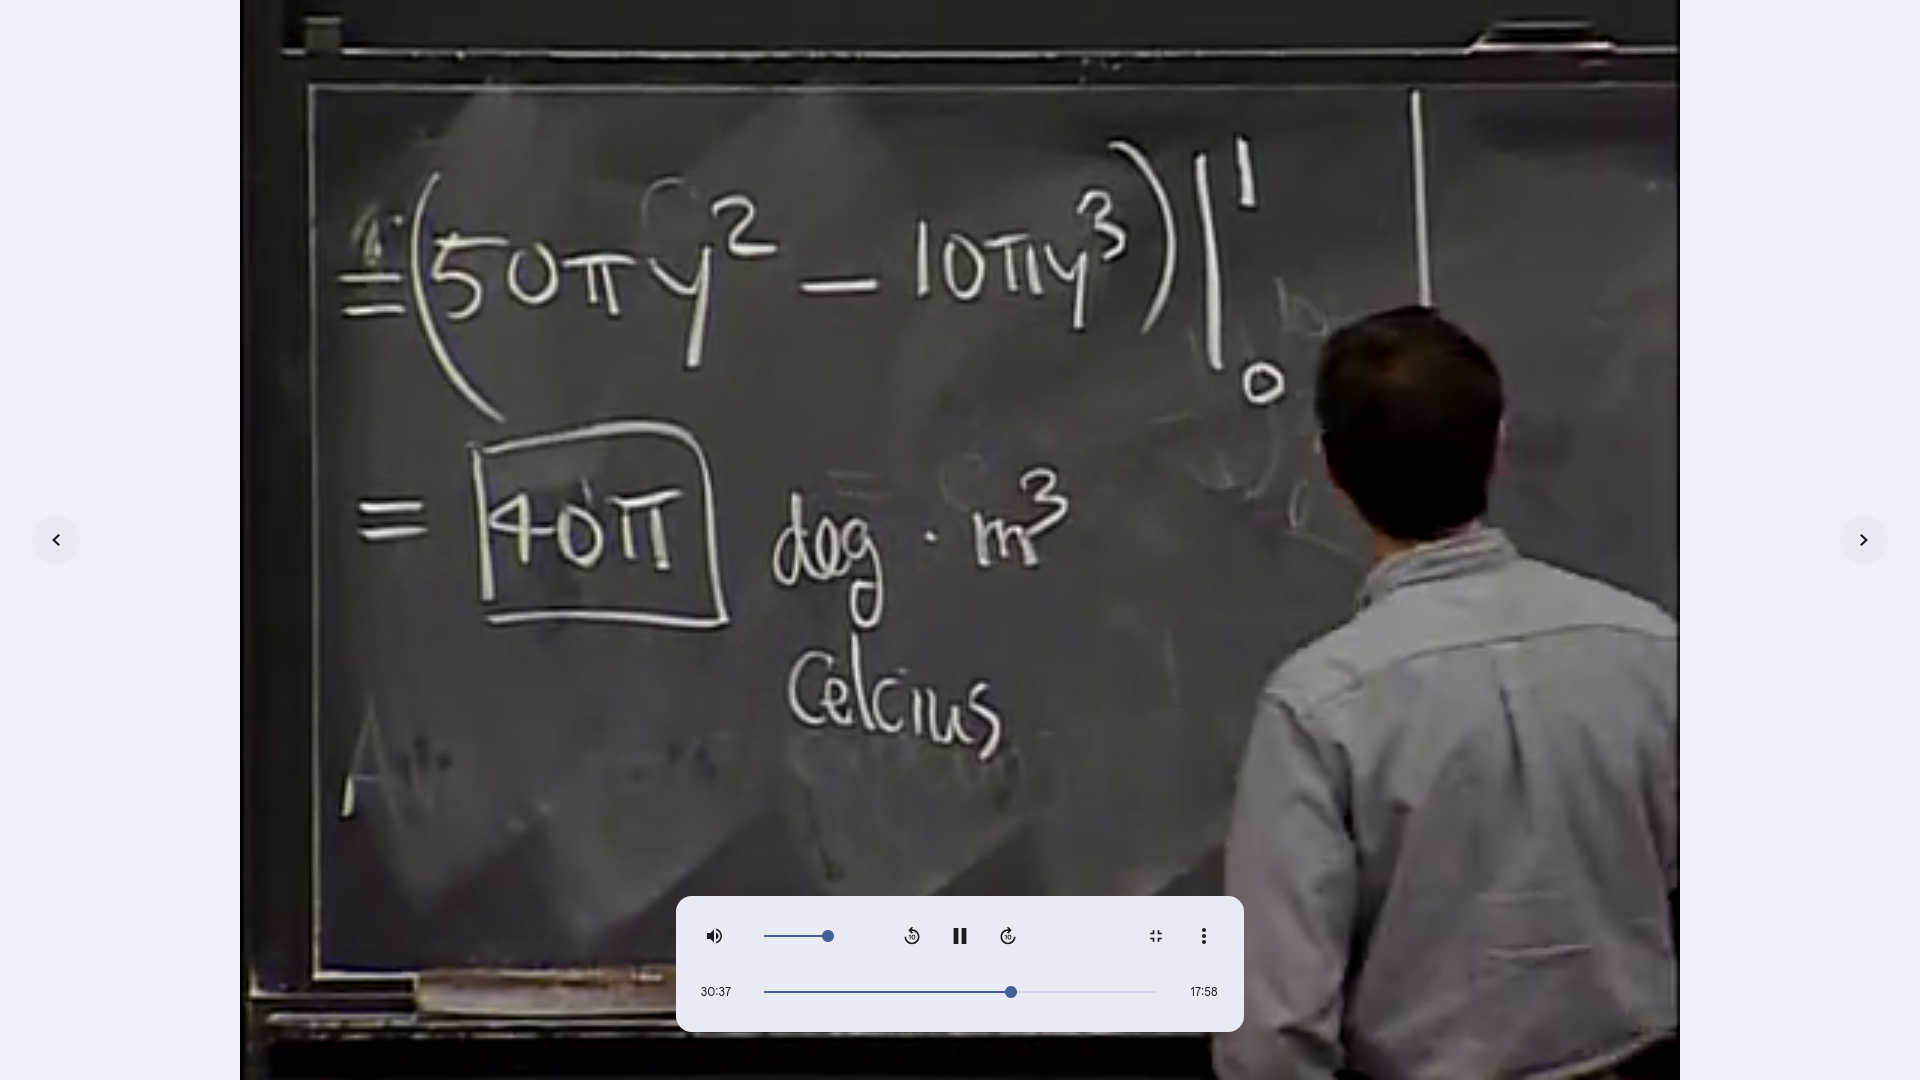 = (50πy² − 10πy³) |₀¹
= 40π deg · m³
Celcius
30:37
17:58